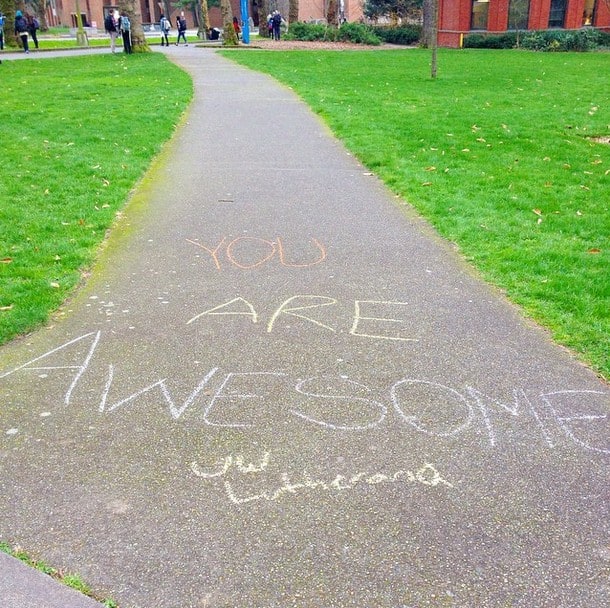 YOU
ARE
AWESOME
UW
Lutherans